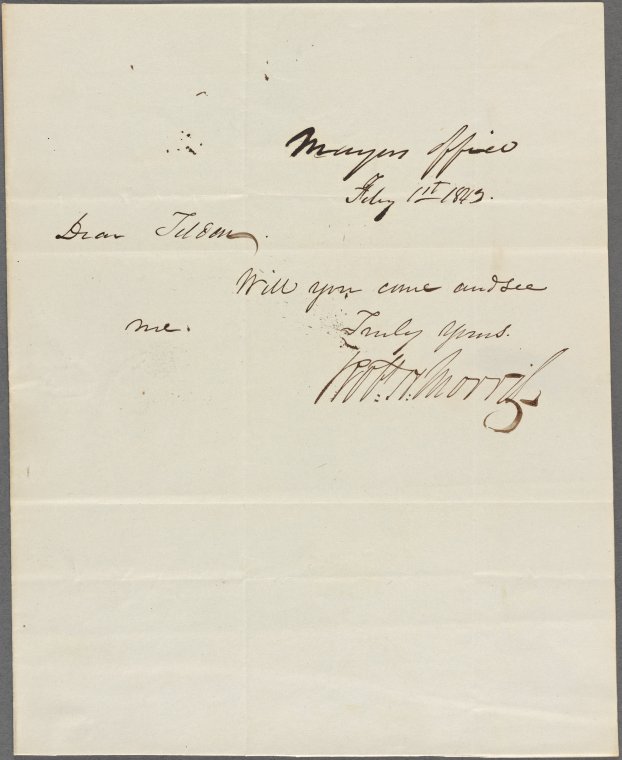 Mayors Office
Feby 1st 1843.
Dear Tilden,
Will you come and see
me.
Truly Yours.
Robt. H. Morris